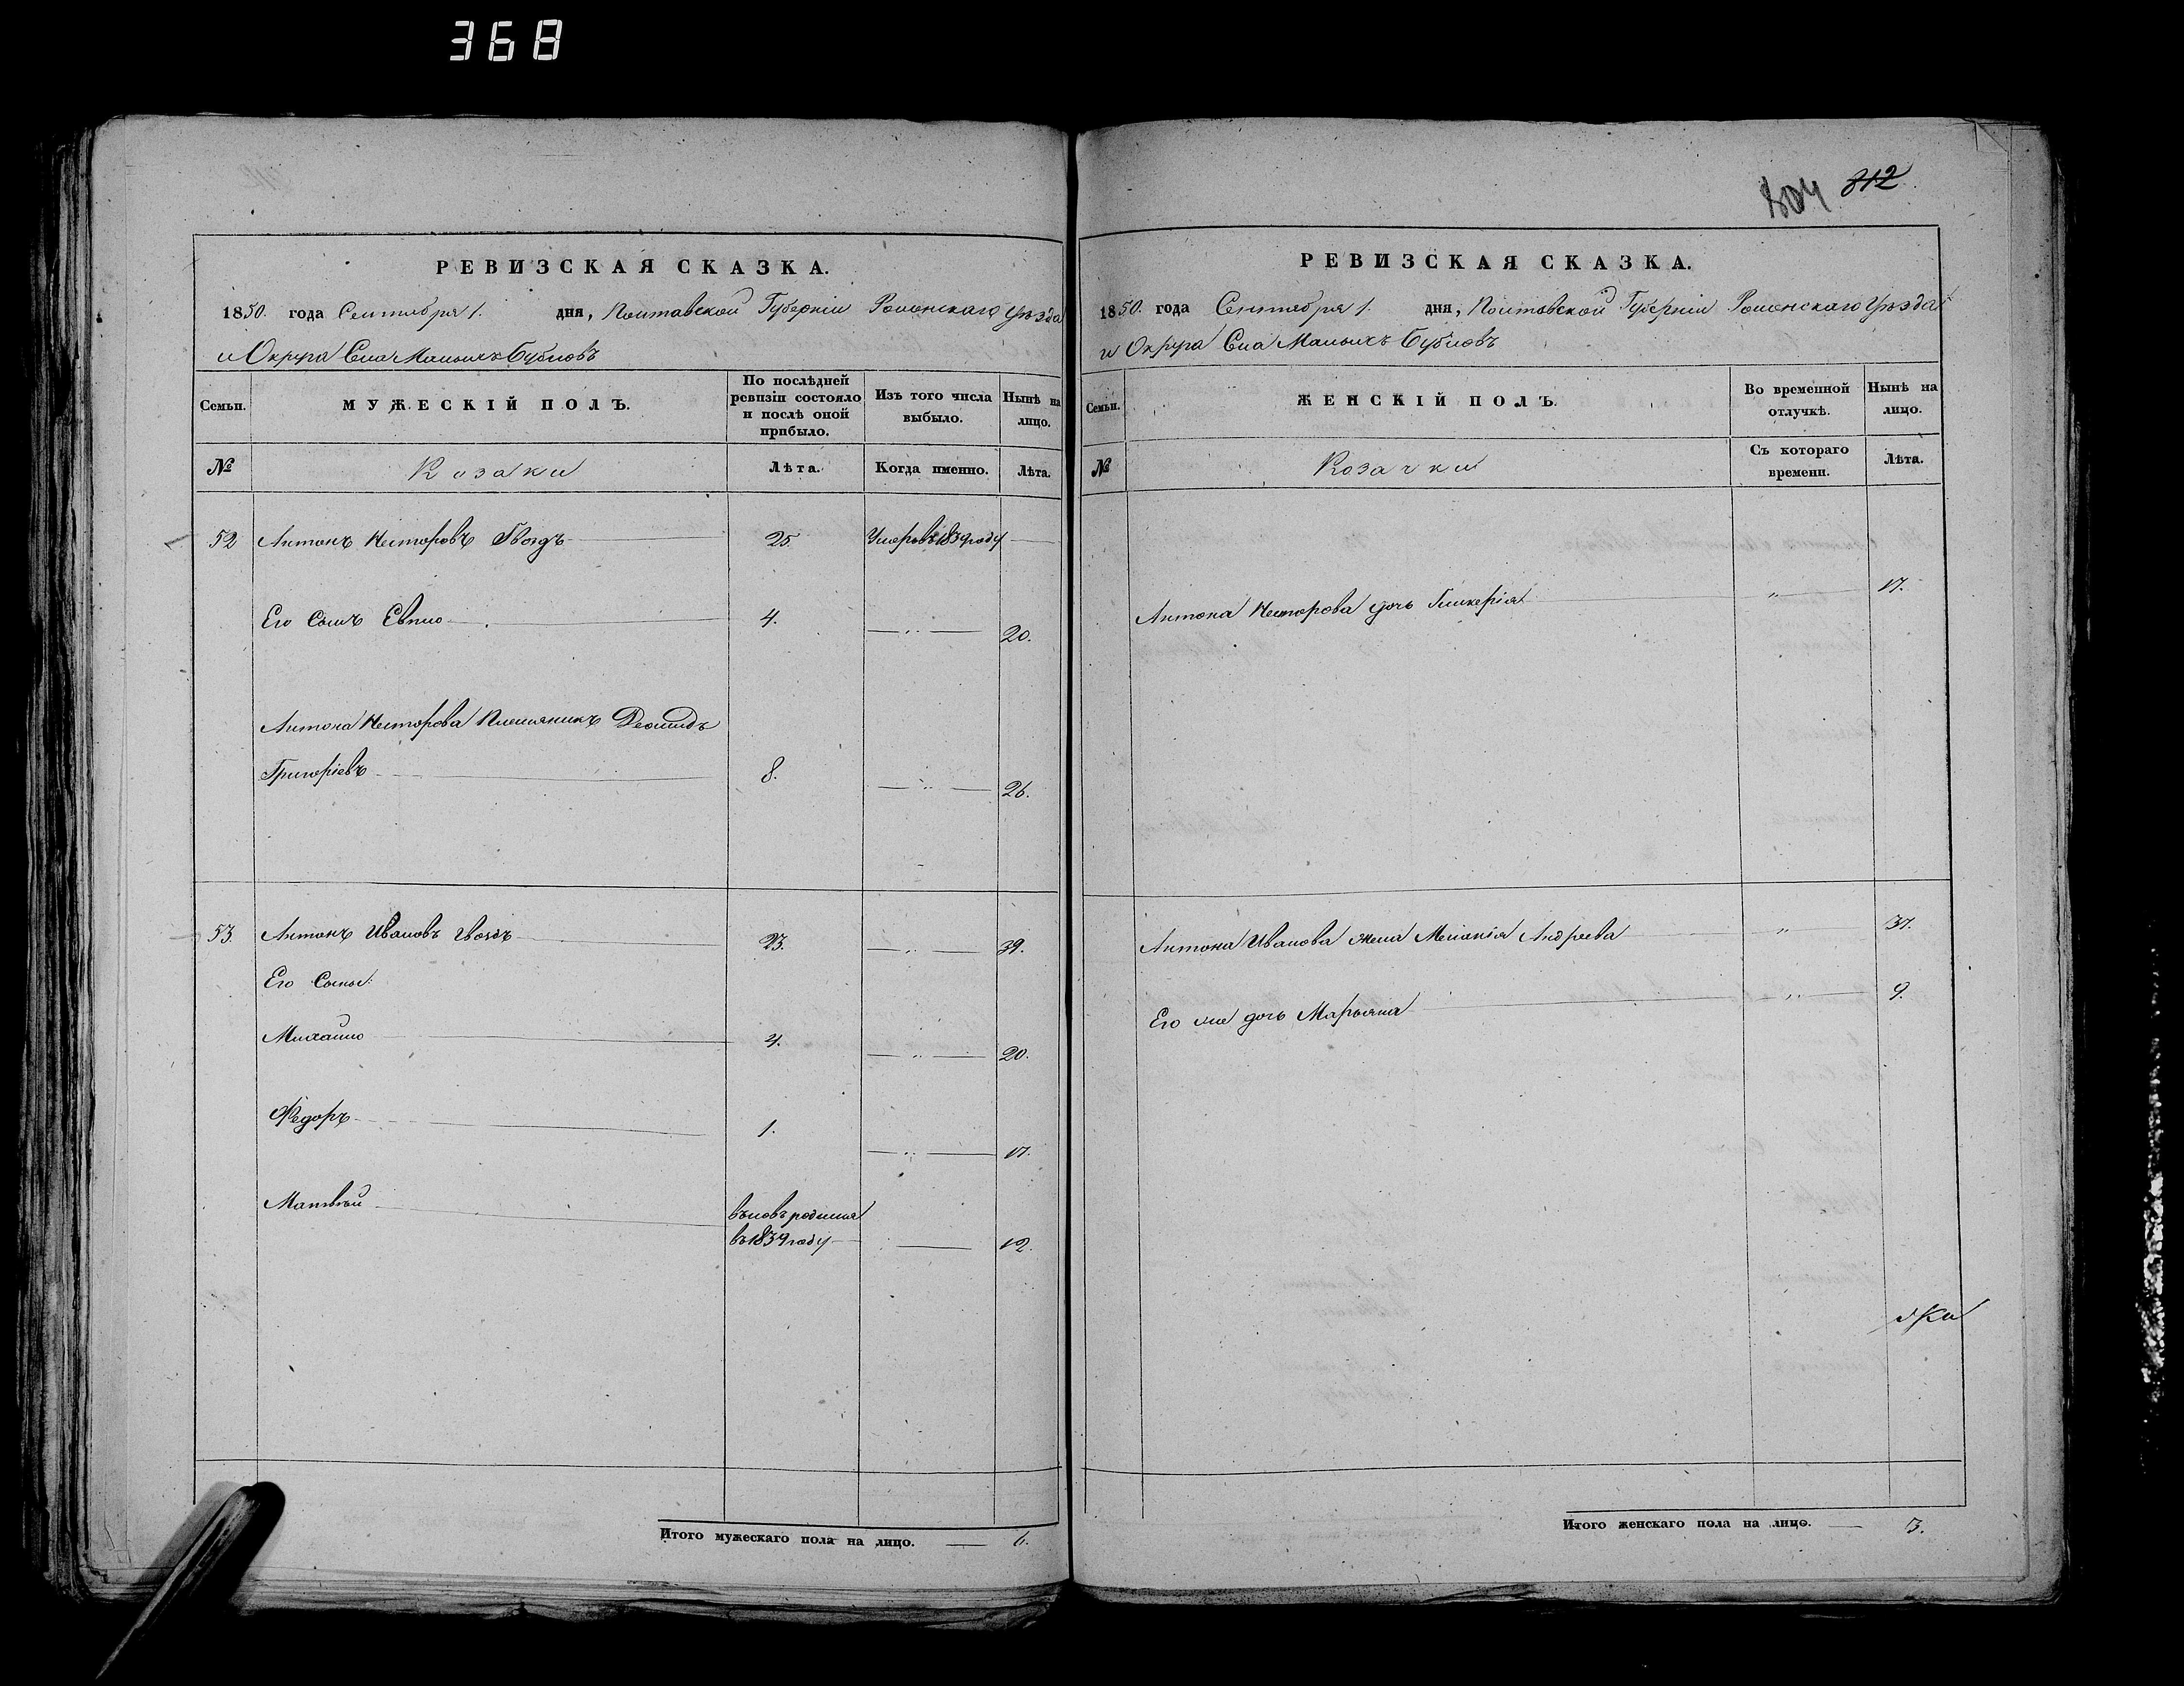 368
РЕВИЗСКАЯ СКАЗКА.
1850. года Сентября 1. дня, Полтавской Губерніи Роменскаго Уѣзда
и Округа Села Малыхъ Бубновъ
Семьи.
МУЖЕСКІЙ ПОЛЪ.
По послѣдней ревизіи состояло и послѣ оной прибыло.
Изъ того числа выбыло.
Нынѣ на лицо.
№
Козаки
Лѣта.
Когда именно.
Лѣта.
52 Антонъ Несторовъ Гвоздь 25. Умеръ въ 1839 году
Его Сынъ Евпло 4. 20.
Антона Несторова Племяникъ Деомидъ
Григоріевъ 8. 26.
53. Антонъ Ивановъ Гвоздь 23. 39.
Его Сыны:
Михайло 4. 20.
Федоръ 1. 17.
Матвѣй вновь родился
въ 1839 году 12.
Итого мужескаго пола на лицо. 6.
804 812
РЕВИЗСКАЯ СКАЗКА.
1850. года Сентября 1. дня, Полтавской Губерніи Роменскаго Уѣзда
и Округа Села Малыхъ Бубновъ
Семьи.
ЖЕНСКІЙ ПОЛЪ.
Во временной отлучкѣ.
Нынѣ на лицо.
№
Козачки
Съ котораго времени.
Лѣта.
Антона Несторова дочь Гликерія " 17.
Антона Иванова жена Меланія Андреева " 37.
Его же дочь Марьяна " 9.
Итого женскаго пола на лицо. 3.